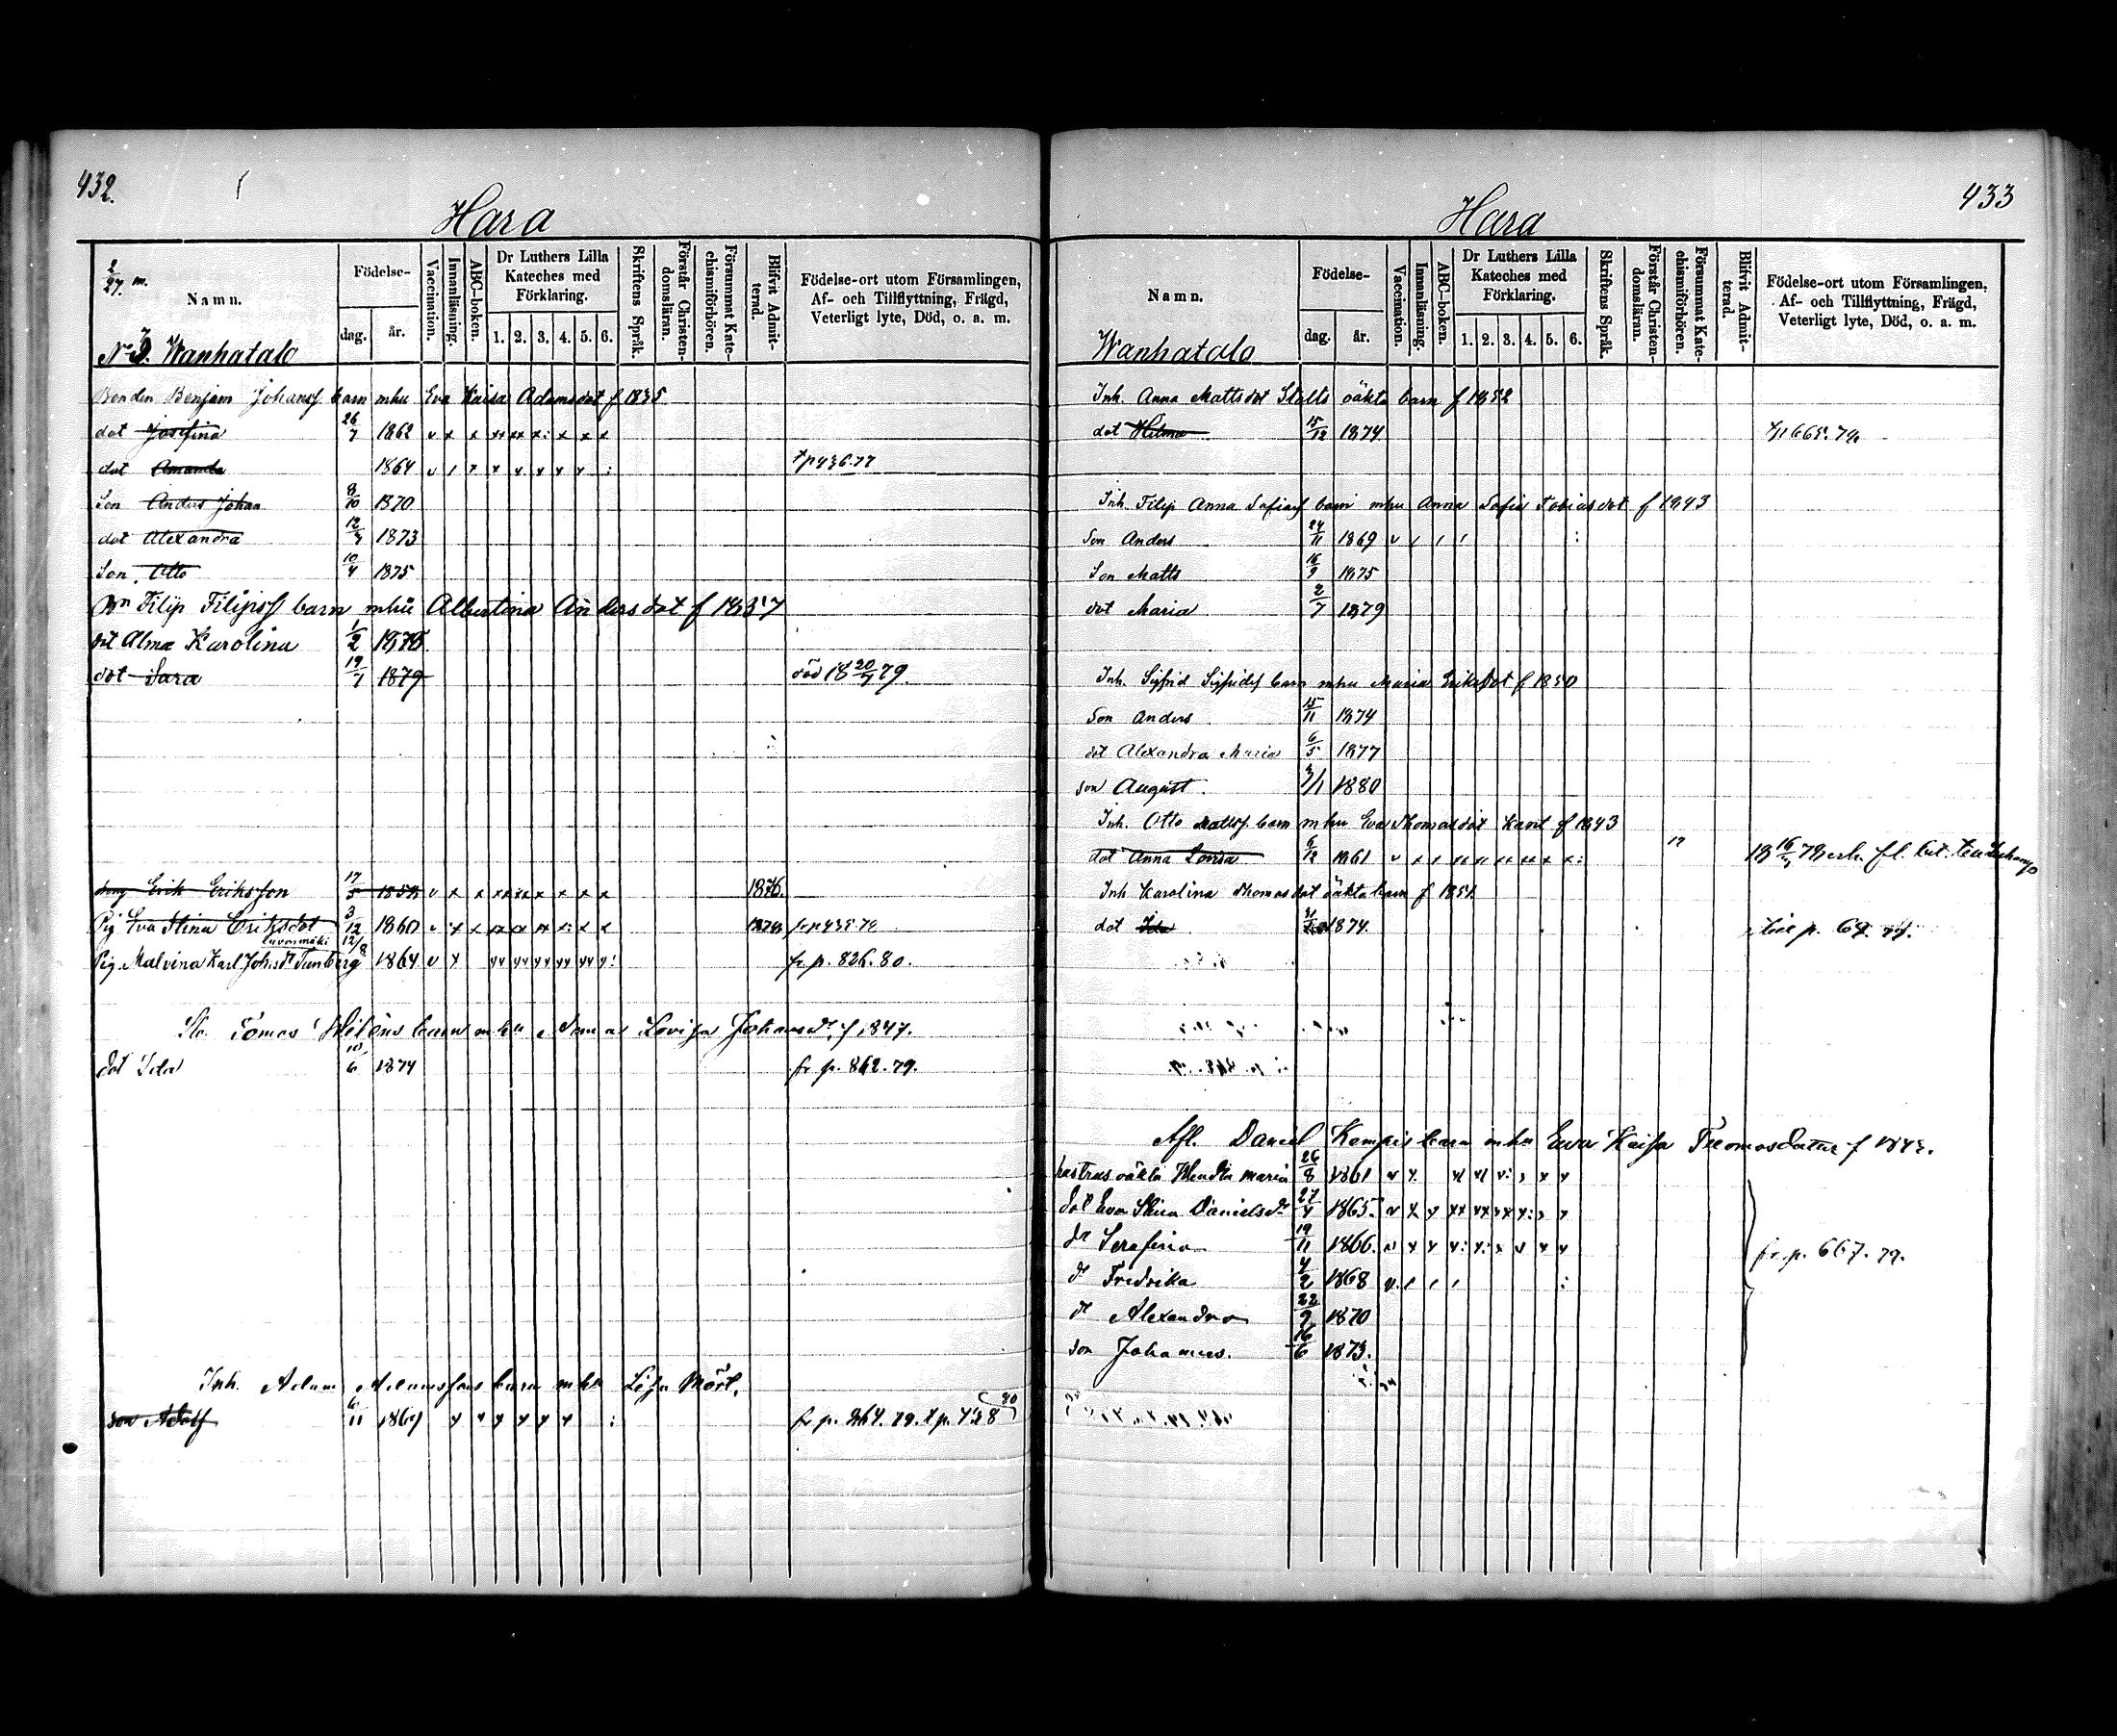 432.
Hara
1/27 m.
Namn.
Födelse-
dag.
år.
Vaccination.
Innanläsning.
ABC-boken.
Dr Luthers Lilla
Kateches med
Förklaring.
1. 2. 3. 4. 5. 6.
Skriftens Språk.
Förstår Christen-
domsläran.
Försummat Kate-
chismiförhören.
Blifvit Admit-
terad.
Födelse-ort utom Församlingen,
Af- och Tillflyttning, Frägd,
Veterligt lyte, Död, o. a. m.
No 3. Wanhatalo
Bonden Benjam Johanss barn mhu Eva Kaisa Adamsdot f 1835
dot Josefina 26/7 1862
dot Amanda 1864 p 436.77
Son Anders Johan 8/10 1870
dot Alexandra 12/4 1873
Son Otto 10/4 1875
Bn Filip Filipss barn mhu Albertina Andersdot f 1857
dt Alma Karolina 1/2 1878
dot Sara 19/1 1879 död 18 20/4 79.
dräng Erik Eriksson 17/5 1858 1876.
Pig Eva Stina Eriksdot 3/12 1860 1878 fr p 435.78
luvanmäki
Pig. Malvina Karl Johsdt Tunberg 12/8 1864 fr p. 826.80.
Tomas barn mhu Lovisa Johansdr f 1847.
dot Ida 10/6 1874 fr p. 862.79.
Inh. Adam Adamssons barn mhu Lisa Mört.
son Adolf 6/11 1867 fr p. 264.79. t p. 428 80
433
Hara
Namn.
Födelse-
dag.
år.
Vaccination.
Innanläsning.
ABC-boken.
Dr Luthers Lilla
Kateches med
Förklaring.
1. 2. 3. 4. 5. 6.
Skriftens Språk.
Förstår Christen-
domsläran.
Försummat Kate-
chismiförhören.
Blifvit Admit-
terad.
Födelse-ort utom Församlingen,
Af- och Tillflyttning, Frägd,
Veterligt lyte, Död, o. a. m.
Wanhatalo
Inh. Anna Mattsdot Stalls oäkta barn f 1852
dot Hilma 15/12 1874
Inh. Filip Anna Sofiass barn mhu Anna Sofia Tobiasdot f 1843
Son Anders 24/11 1869
Son Matts 16/9 1875
dot Maria 2/7 1879
Inh. Sigfrid Sigfridss barn mhu Maria Eriksdot f 1850
Son Anders 15/11 1874
dot Alexandra Maria 6/5 1877
son August 1880
Inh. Otto Mattss. barn mhu Eva Thomasdot Kant f 1843
dot Anna Lovisa 6/12 1861
Inh Karolina Thomasdot oäkta barn f 1851.
dot Ida 1874
Afl. Daniel Kempes barn mhu Eva Kaisa Thomasdatter f
hustrus oäkta Maria 26/8 1861
dot Eva Stina Danielsdr 27/4 1865.
dr Serafina 19/11 1866.
dr Fredrika 4/2 1868
dr Alexandra 22/9 1870
son Johannes. 16/6 1873.
fr. p. 667. 79.